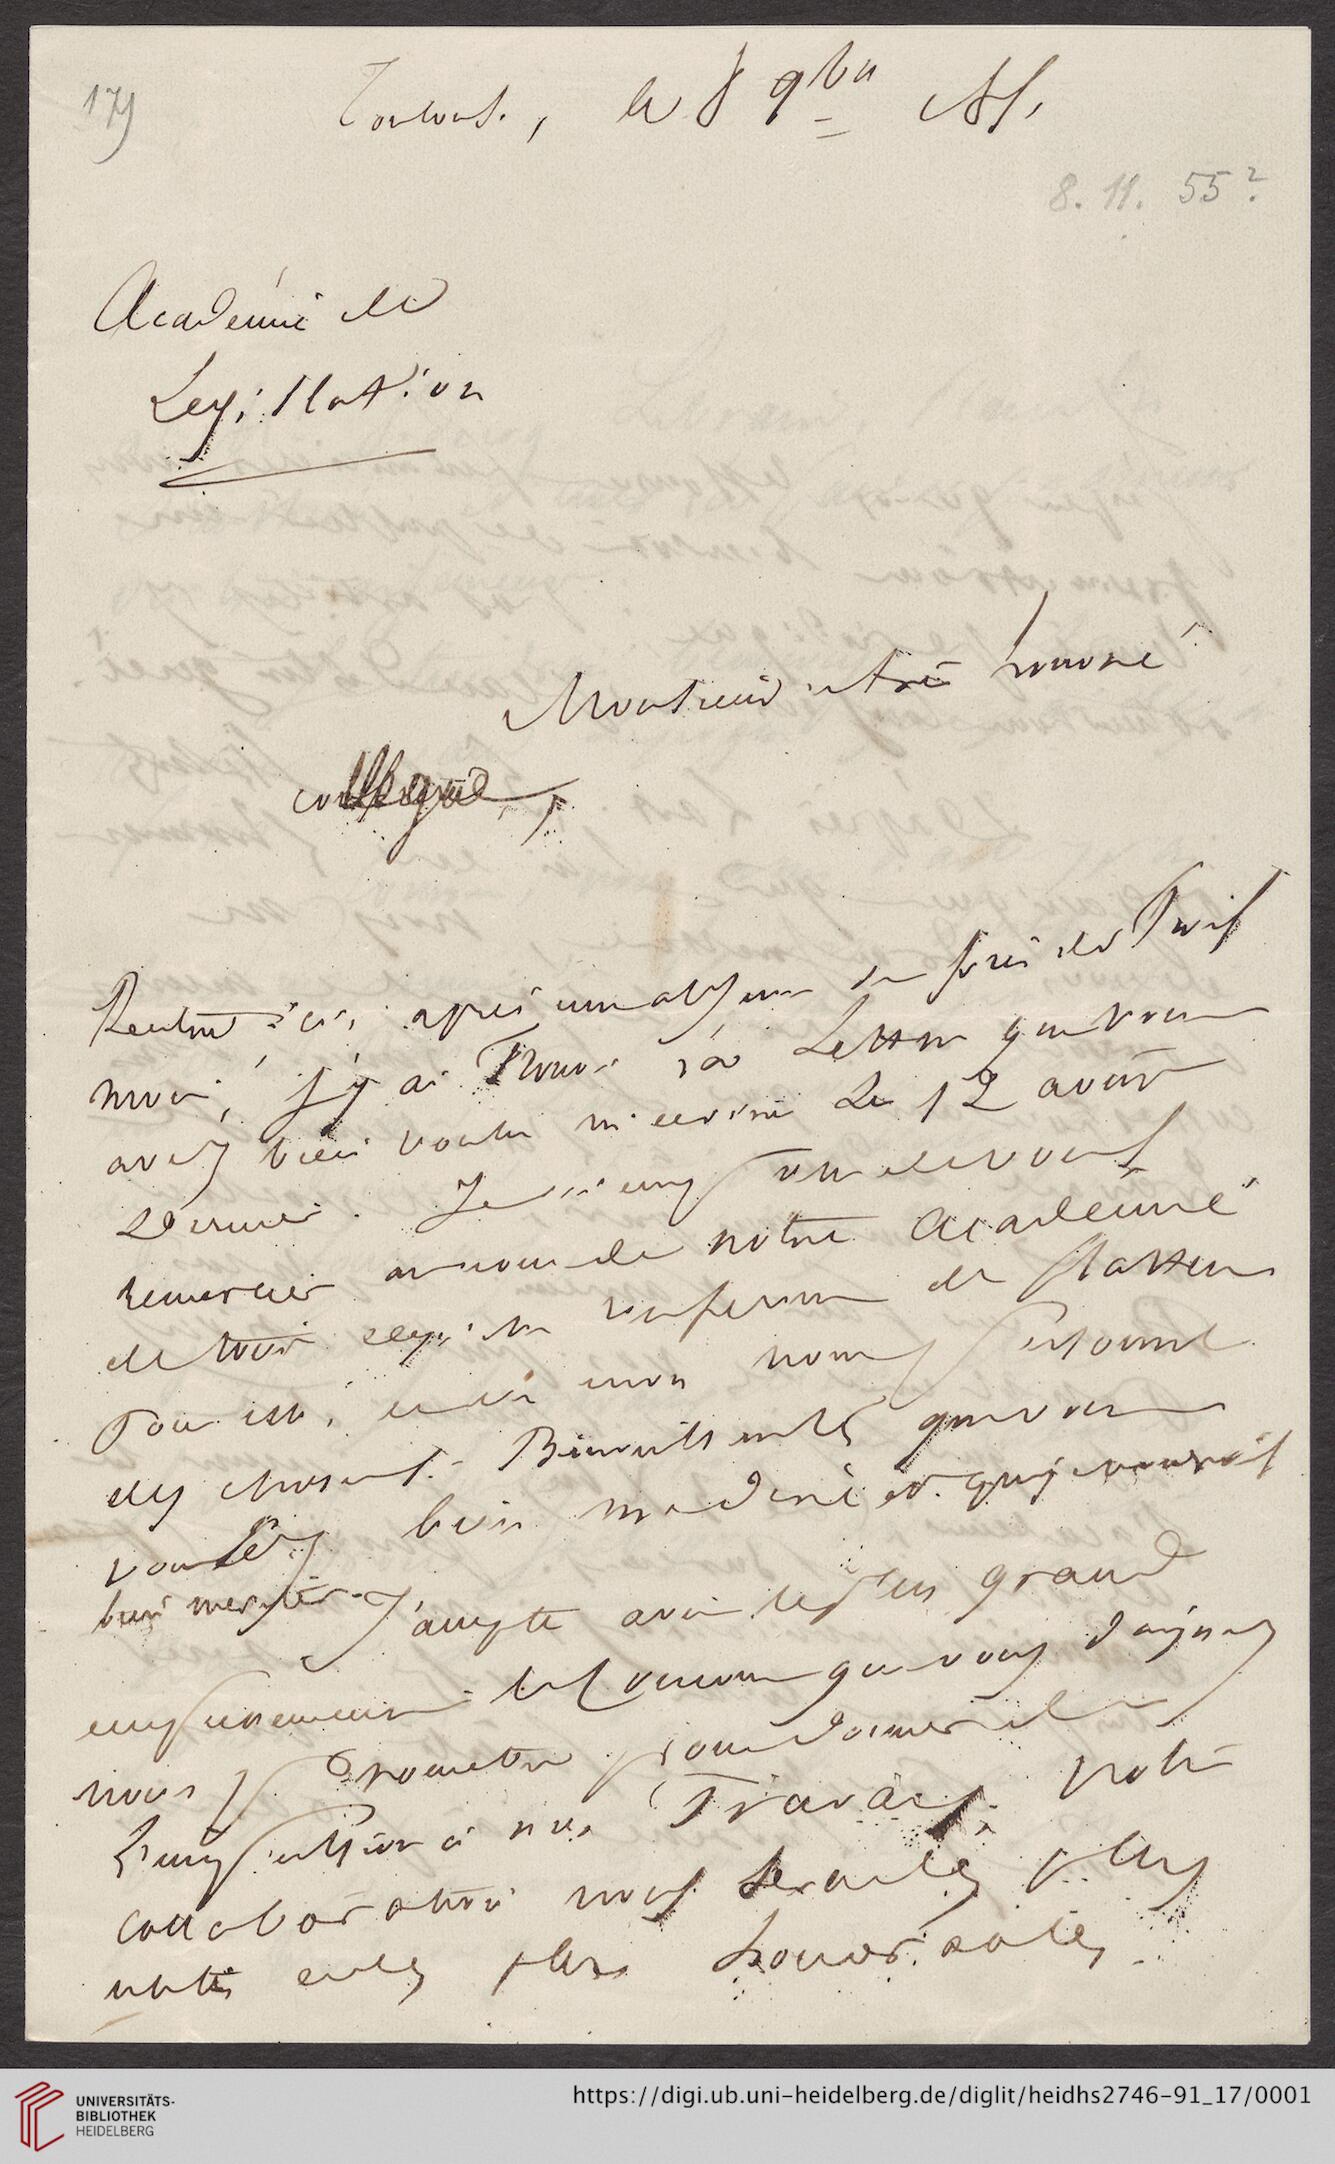 179
Toulouse, le 8 9bre 55.
8. 11. 55?
Académie de
Législation
Monsieur et très honoré
collègue,
Rentré ici, après une absence de près de trois
mois, j'y ai trouvé la lettre que vous
avez bien voulu m'écrire le 12 août
dernier. Je m'empresse de vous
remercier au nom de notre Académie
de tout ce qu'elle renferme de flatteur
pour elle, et en mon nom personnel
des choses bienveillantes que vous
voulez bien me dire et que je voudrais
bien mériter. J'accepte avec le plus grand
empressement le concours que vous daignez
nous promettre pour donner de
l'impulsion à nos travaux. Votre
collaboration nous sera des plus
utiles et des plus honorables.
UNIVERSITÄTS-
BIBLIOTHEK
HEIDELBERG
https://digi.ub.uni-heidelberg.de/diglit/heidhs2746-91_17/0001